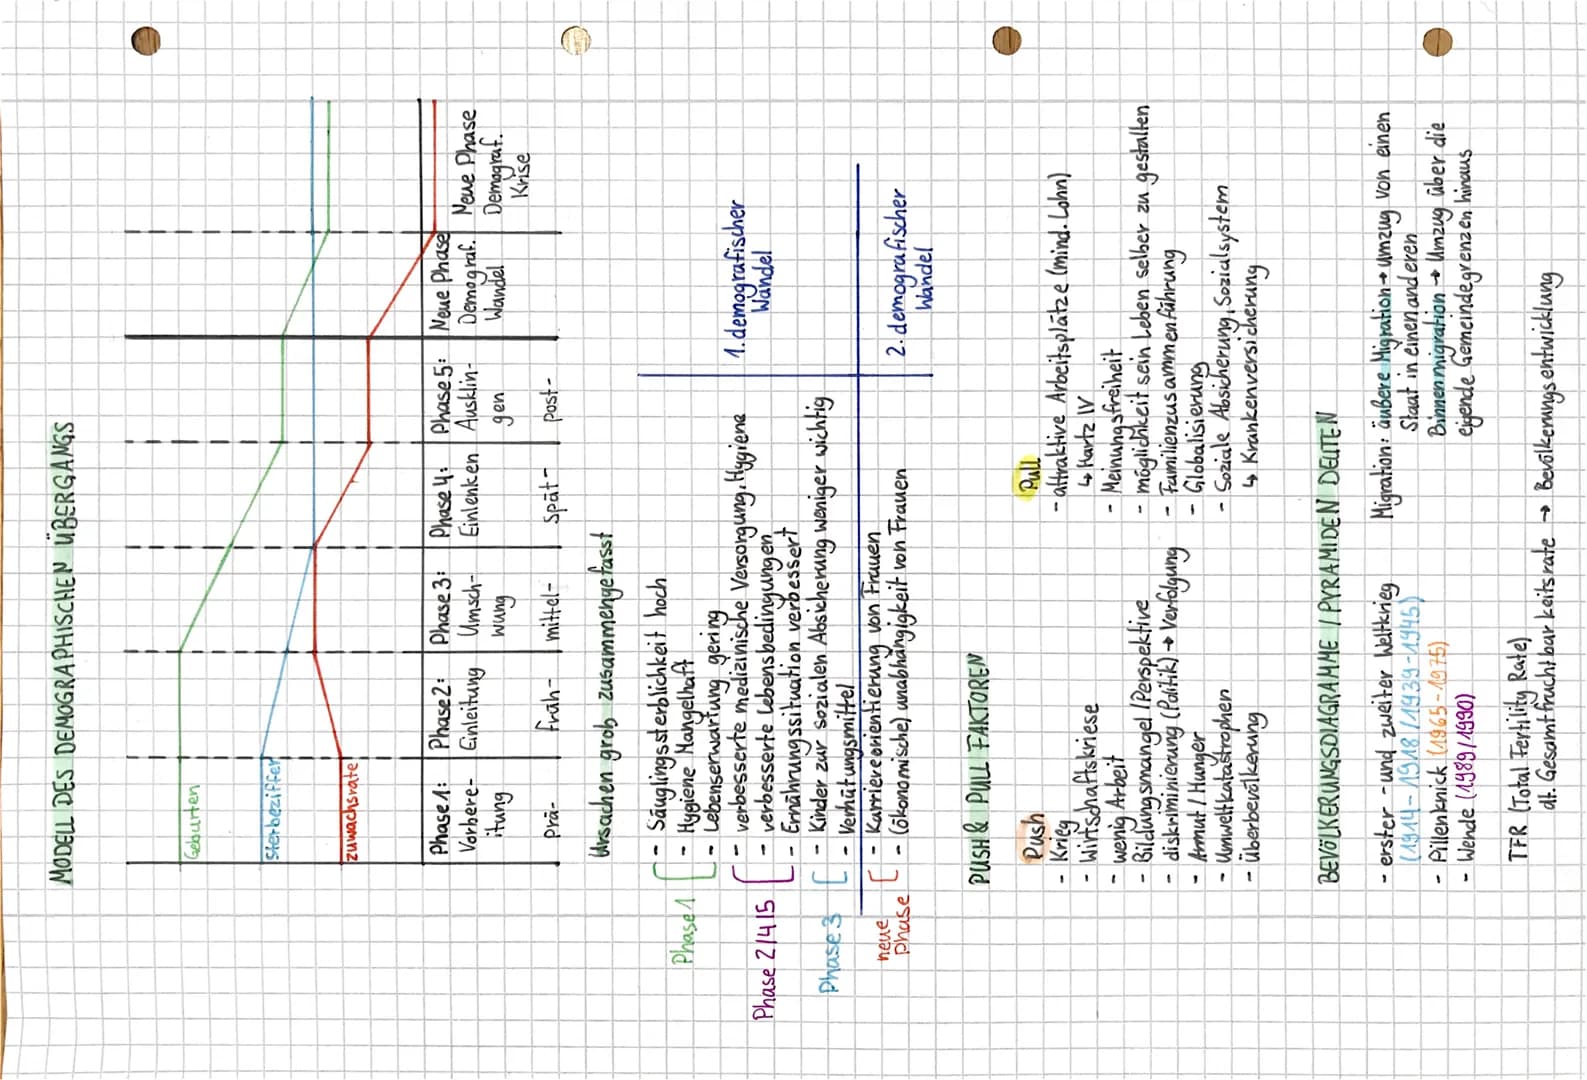 MODELL DES DEMOGRAPHISCHEN ÜBERGANGS
Geburten
Sterbeziffer
zuwachsrate
Phase1:
Vorbere-
itung
prä-
Phase2:
Einleitung
früh-
Phase3:
Umsch-
wung
mittel-
Phase4:
Einlenken
spät-
Phase5:
Ausklin-
gen
post-
Neue Phase
Demograf.
Wandel
Neue Phase
Demograf.
Krise
Ursachen grob zusammengefasst
Phase1
- Säuglingssterblichkeit hoch
- Hygiene Mangelhaft
- Lebenserwartung gering
Phase 2/4/5
- verbesserte medizinische Versorgung, Hygiene
- verbesserte Lebensbedingungen
- Ernährungssituation verbessert
Phase 3
- Kinder zur sozialen Absicherung weniger wichtig
- Verhütungsmittel
1. demografischer
Wandel
neue
Phase
- Karriereorientierung von Frauen
- (ökonomische) unabhängigkeit von Frauen
2. demografischer
Wandel
PUSH & PULL FAKTOREN
Push
- Krieg
- Wirtschaftskriese
- wenig Arbeit
- Bildungsmangel / Perspektive
- diskriminierung (Politik) → Verfolgung
- Armut / Hunger
- Umweltkatastrophen
- Überbevölkerung
Pull
- attraktive Arbeitsplätze (mind. Lohn)
↳ Hartz IV
- Meinungsfreiheit
- möglichkeit sein Leben selber zu gestalten
- Familienzusammenführung
- Globalisierung
- Soziale Absicherung, Sozialsystem
↳ Krankenversicherung
BEVÖLKERUNGSDIAGRAMME / PYRAMIDEN DEUTEN
- erster - und zweiter Weltkrieg
(1914-1918 / 1939-1945)
- Pillenknick (1965-1975)
- Wende (1989/1990)
Migration: äußere Migration → Umzug von einen
Staat in einen anderen
Binnenmigration → Umzug über die
eigende Gemeindegrenzen hinaus
TFR (Total Fertility Rate)
dt. Gesamtfruchtbarkeitsrate → Bevölkerungsentwicklung